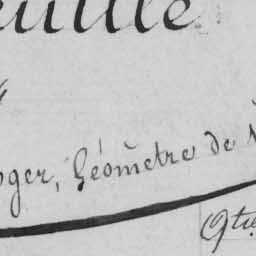 euille
oger, Géomètre de
qtie